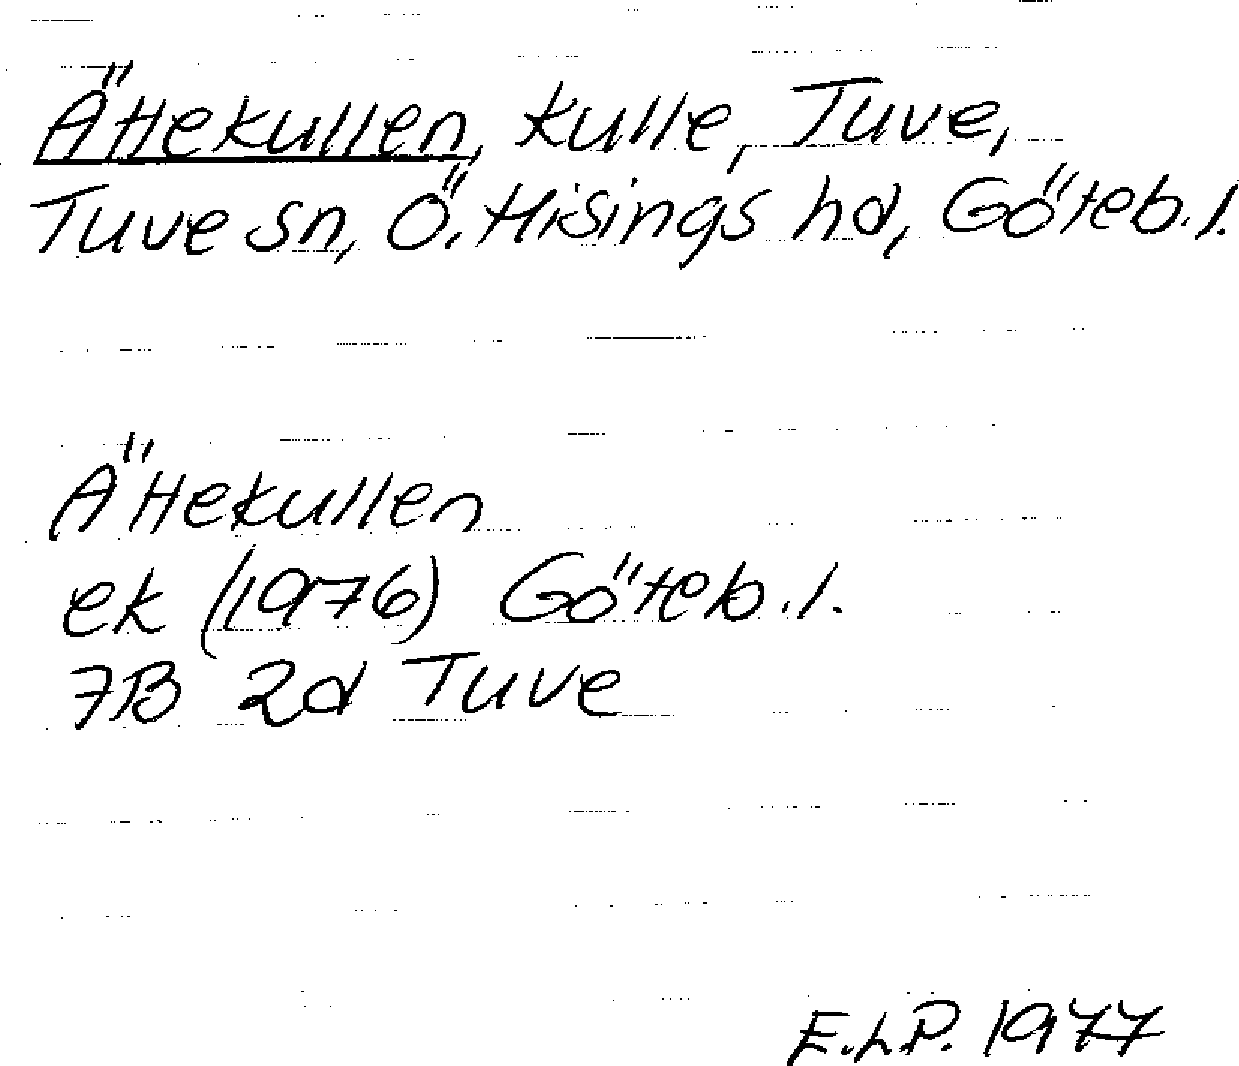 Ättekullen, kulle, Tuve,
Tuve sn, Ö. Hisings hd, Göteb. l.
Ättekullen
ek (1976) Göteb. l.
7B 2d Tuve
E.L.P. 1977